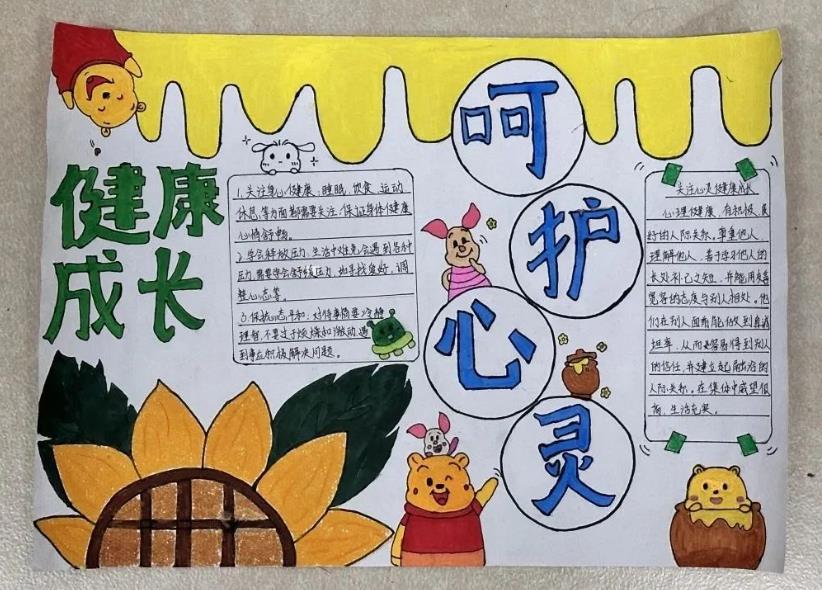 呵
护
心
灵
健康
成长
1.关注身心健康:睡眠、饮食、运动
休息等方面都需要关注,保证身体健康
心情舒畅。
2.学会释放压力,生活中难免会遇到各种
压力,需要学会舒缓压力,如寻找爱好、调
整心态等。
3.保持心态平和:对待事简要冷静
理智,不要过于烦燥和激动,遇
到事应积极解决问题。
关注心灵健康成长
心理健康,有积极、良
好的人际关系。尊重他人
理解他人,善于学习他人的
长处补己之短,并能用友善
宽容的态度与别人相处。他
们在别人面前能做到真诚
坦率,从而更容易得到别人
的信任,并建立起融洽的
人际关系。在集体中威望很
高,生活充实。